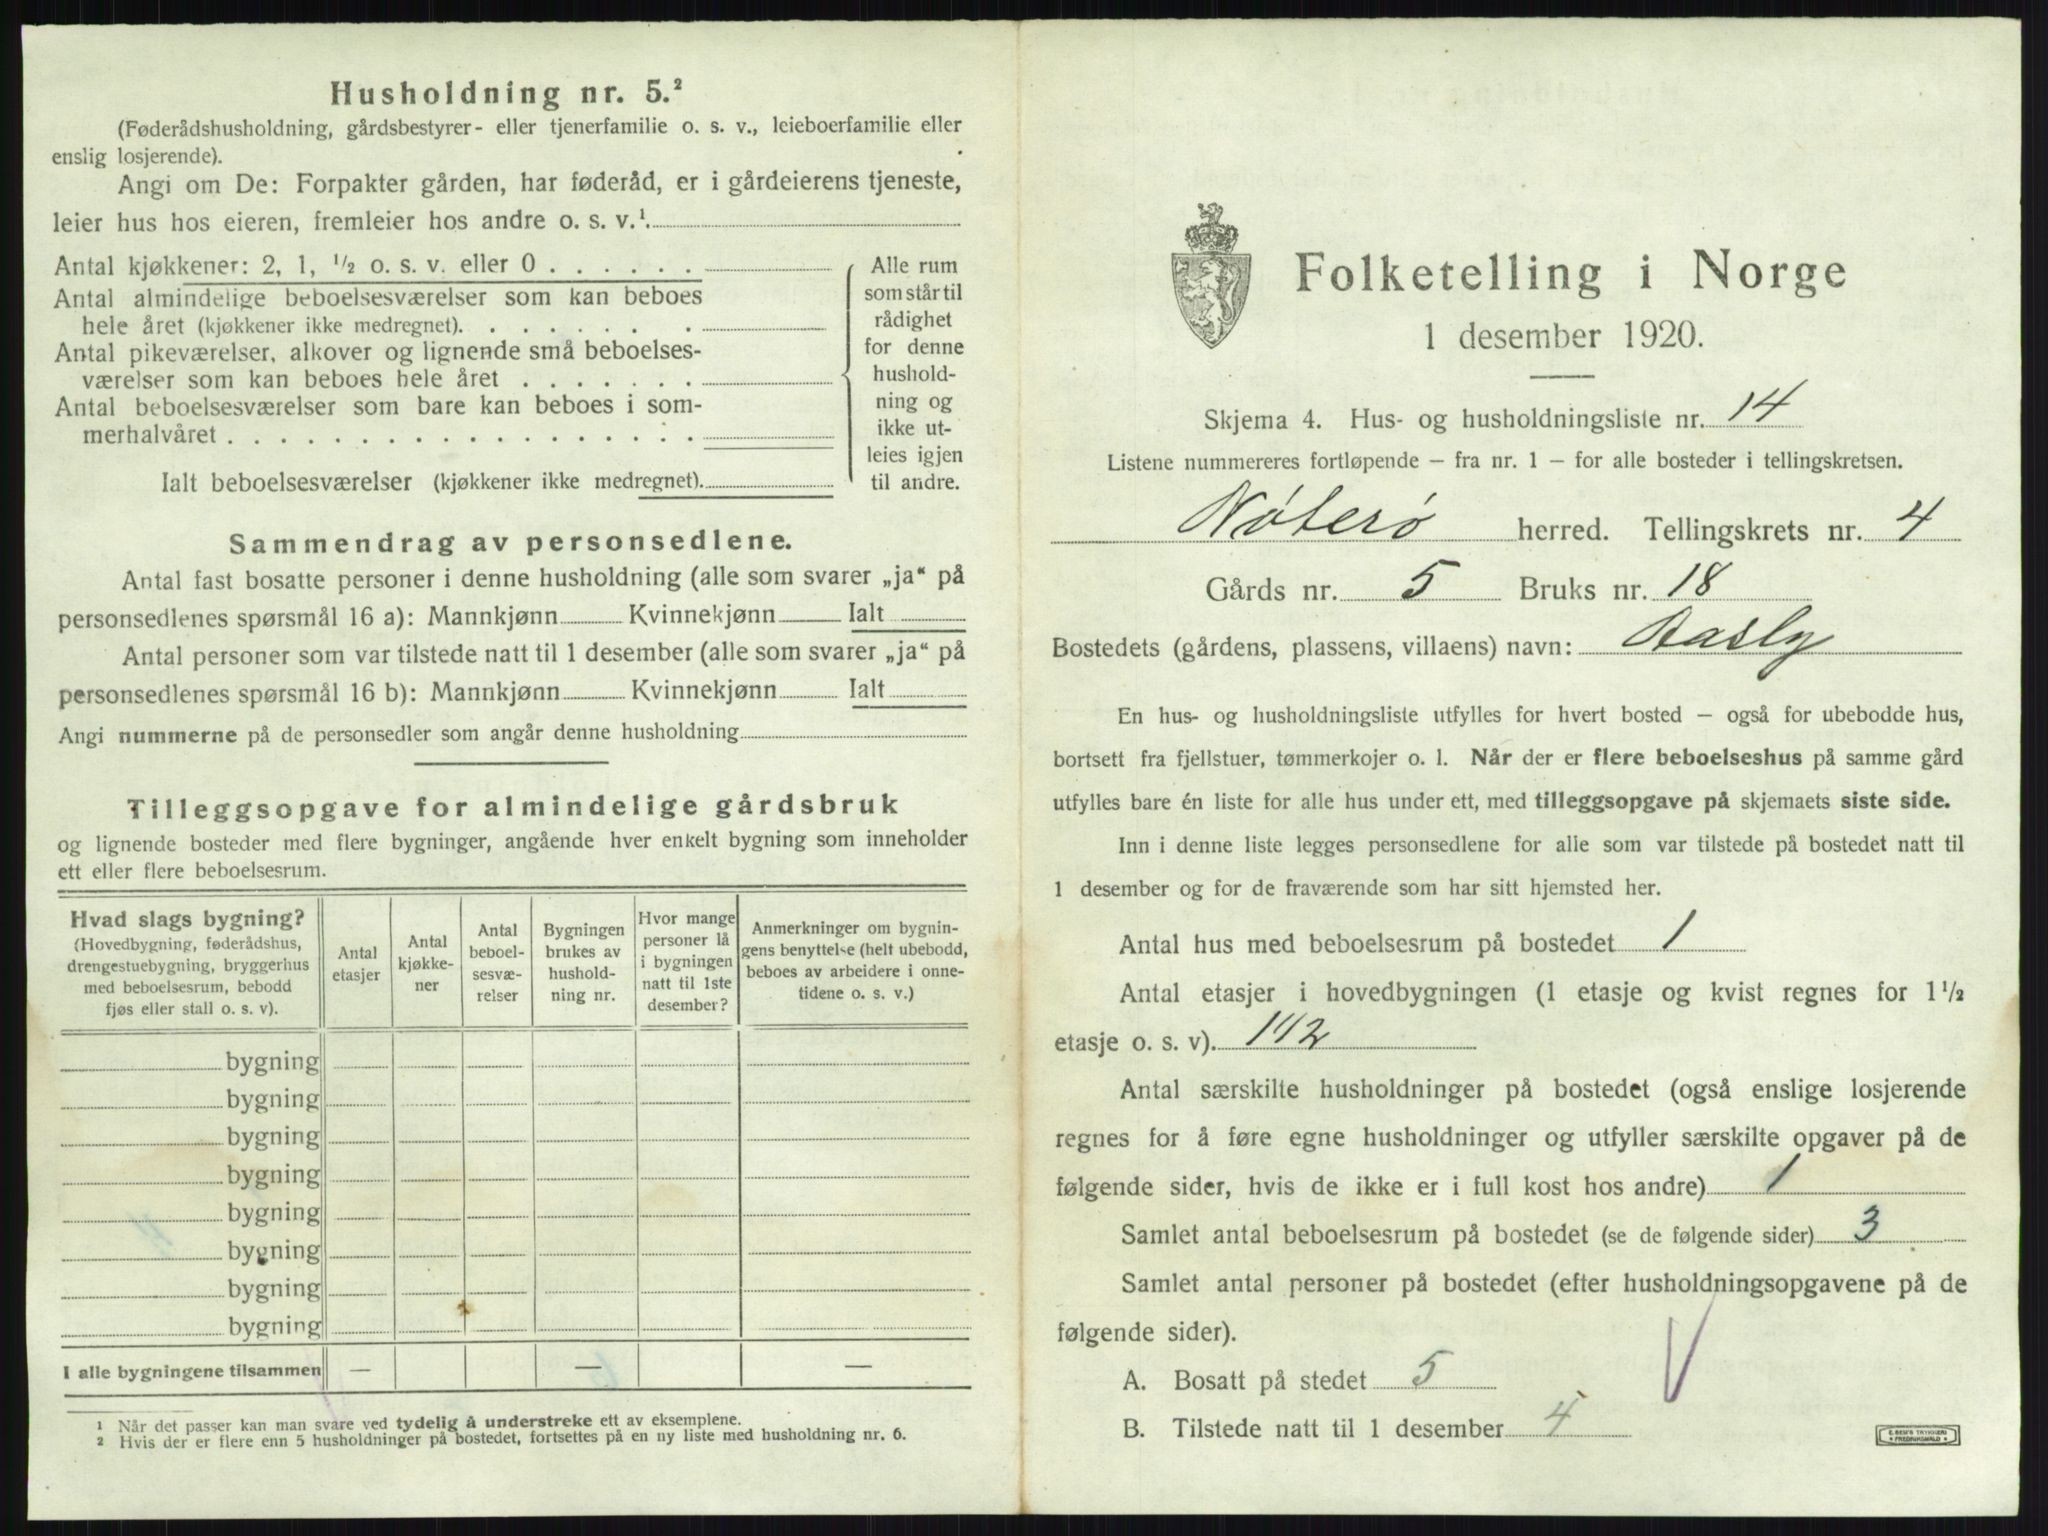 Husholdning nr. 5.²
(Føderådshusholdning, gårdsbestyrer- eller tjenerfamilie o. s. v., leieboerfamilie eller
enslig losjerende).
Angi om De: Forpakter gården, har føderåd, er i gårdeierens tjeneste,
leier hus hos eieren, fremleier hos andre o. s. v.¹
Antal kjøkkener: 2, 1, ½ o. s. v. eller 0 . . . . . .
Antal almindelige beboelsesværelser som kan beboes
hele året (kjøkkener ikke medregnet). . . . . . . .
Antal pikeværelser, alkover og lignende små beboelses-
værelser som kan beboes hele året . . . . . . .
Antal beboelsesværelser som bare kan beboes i som-
merhalvåret . . . . . . . . . . . . . . . . . .
Ialt beboelsesværelser (kjøkkener ikke medregnet).
Alle rum
som står til
rådighet
for denne
hushold-
ning og
ikke ut-
leies igjen
til andre.
Sammendrag av personsedlene.
Antal fast bosatte personer i denne husholdning (alle som svarer „ja“ på
personsedlenes spørsmål 16 a): Mannkjønn Kvinnekjønn Ialt
Antal personer som var tilstede natt til 1 desember (alle som svarer „ja“ på
personsedlenes spørsmål 16 b): Mannkjønn Kvinnekjønn Ialt
Angi nummerne på de personsedler som angår denne husholdning
Tilleggsopgave for almindelige gårdsbruk
og lignende bosteder med flere bygninger, angående hver enkelt bygning som inneholder
ett eller flere beboelsesrum.
Hvad slags bygning?
(Hovedbygning, føderådshus,
drengestuebygning, bryggerhus
med beboelsesrum, bebodd
fjøs eller stall o. s. v).
Antal
etasjer
Antal
kjøkke-
ner
Antal
beboel-
sesvæ-
relser
Bygningen
brukes av
hushold-
ning nr.
Hvor mange
personer lå
i bygningen
natt til 1ste
desember?
Anmerkninger om bygnin-
gens benyttelse (helt ubebodd,
beboes av arbeidere i onne-
tidene o. s. v.)
bygning
bygning
bygning
bygning
bygning
bygning
bygning
bygning
I alle bygningene tilsammen — — —
¹ Når det passer kan man svare ved tydelig å understreke ett av eksemplene.
² Hvis der er flere enn 5 husholdninger på bostedet, fortsettes på en ny liste med husholdning nr. 6.
Folketelling i Norge
1 desember 1920.
Skjema 4. Hus- og husholdningsliste nr. 14
Listene nummereres fortløpende – fra nr. 1 – for alle bosteder i tellingskretsen.
Nøterø herred. Tellingskrets nr. 4
Gårds nr. 5 Bruks nr. 18
Bostedets (gårdens, plassens, villaens) navn: Aasly
En hus- og husholdningsliste utfylles for hvert bosted – også for ubebodde hus,
bortsett fra fjellstuer, tømmerkojer o. l. Når der er flere beboelseshus på samme gård
utfylles bare én liste for alle hus under ett, med tilleggsopgave på skjemaets siste side.
Inn i denne liste legges personsedlene for alle som var tilstede på bostedet natt til
1 desember og for de fraværende som har sitt hjemsted her.
Antal hus med beboelsesrum på bostedet 1
Antal etasjer i hovedbygningen (1 etasje og kvist regnes for 1½
etasje o. s. v). 1 1/2
Antal særskilte husholdninger på bostedet (også enslige losjerende
regnes for å føre egne husholdninger og utfyller særskilte opgaver på de
følgende sider, hvis de ikke er i full kost hos andre) 1
Samlet antal beboelsesrum på bostedet (se de følgende sider) 3
Samlet antal personer på bostedet (efter husholdningsopgavene på de
følgende sider).
A. Bosatt på stedet 5
B. Tilstede natt til 1 desember 4